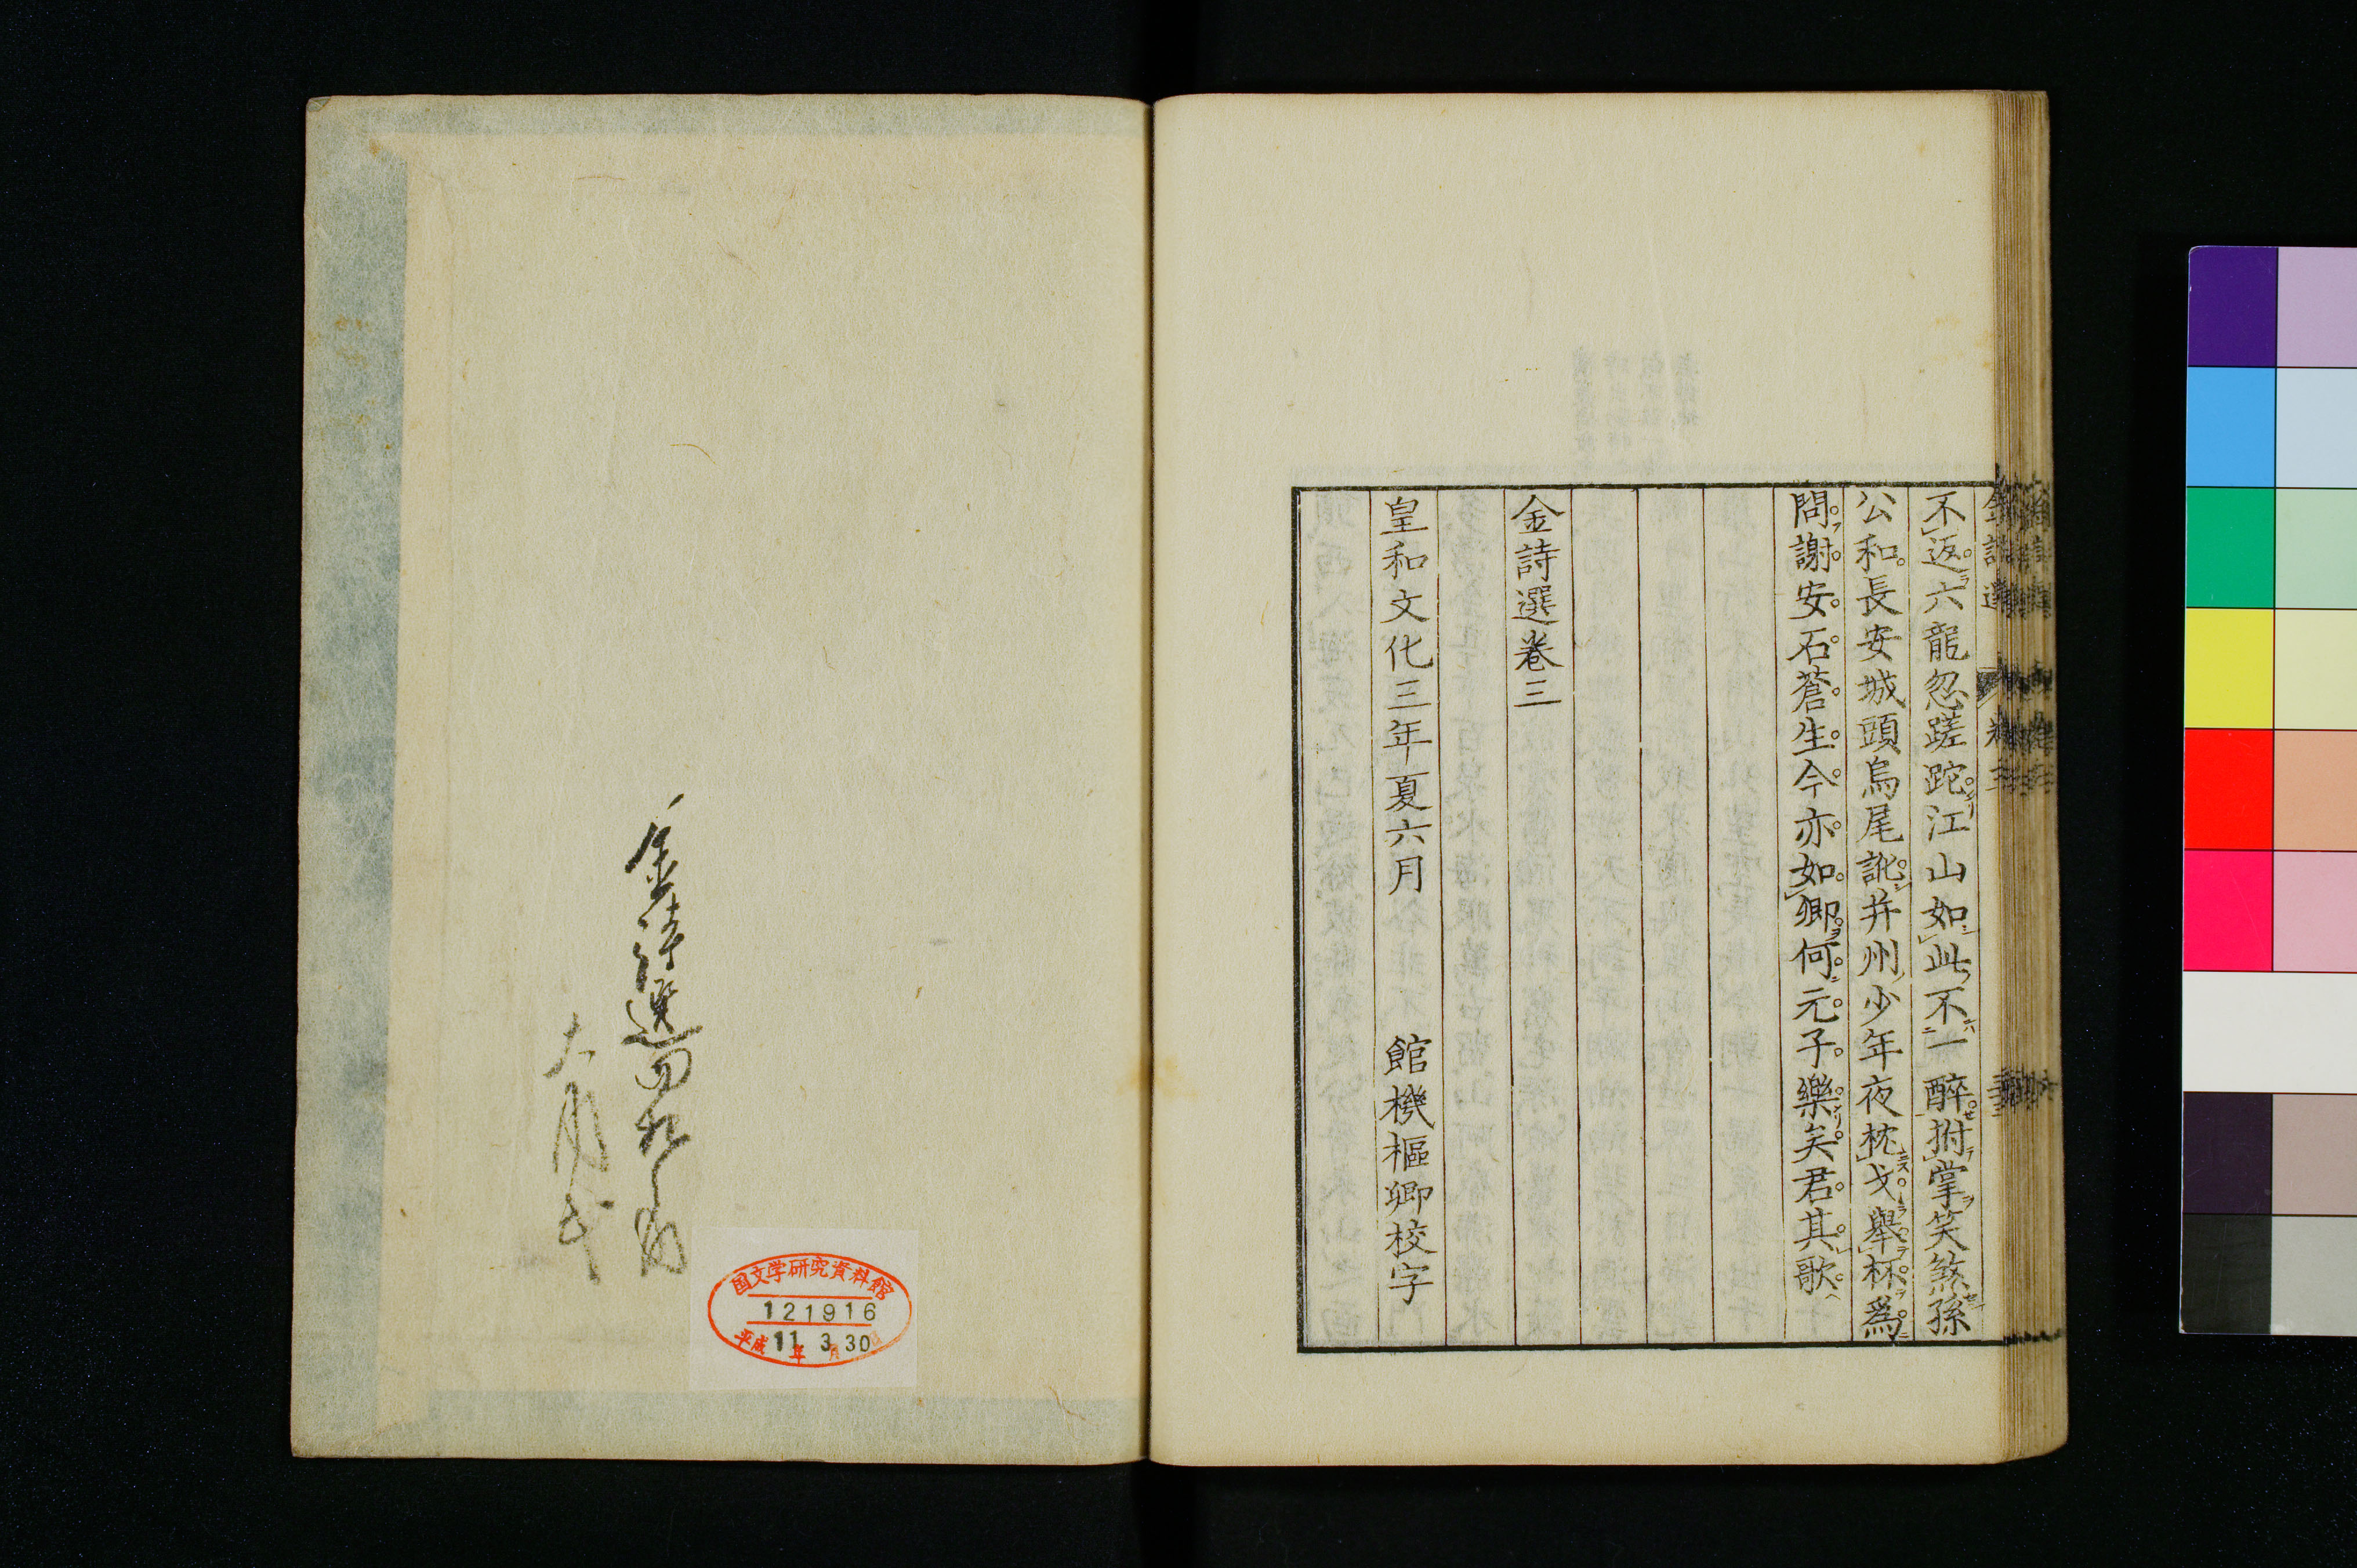 不返六龍忽蹉跎江山如此不一醉拊掌笑煞孫
公和長安城頭烏尾訛并州少年夜枕戈舉杯爲
問謝安石蒼生今亦如卿何元子樂矣君其歌
金詩選巻三
皇和文化三年夏六月 館機樞卿校字
金詩選四
國文学研究資料館
121916
平成11年3月30日